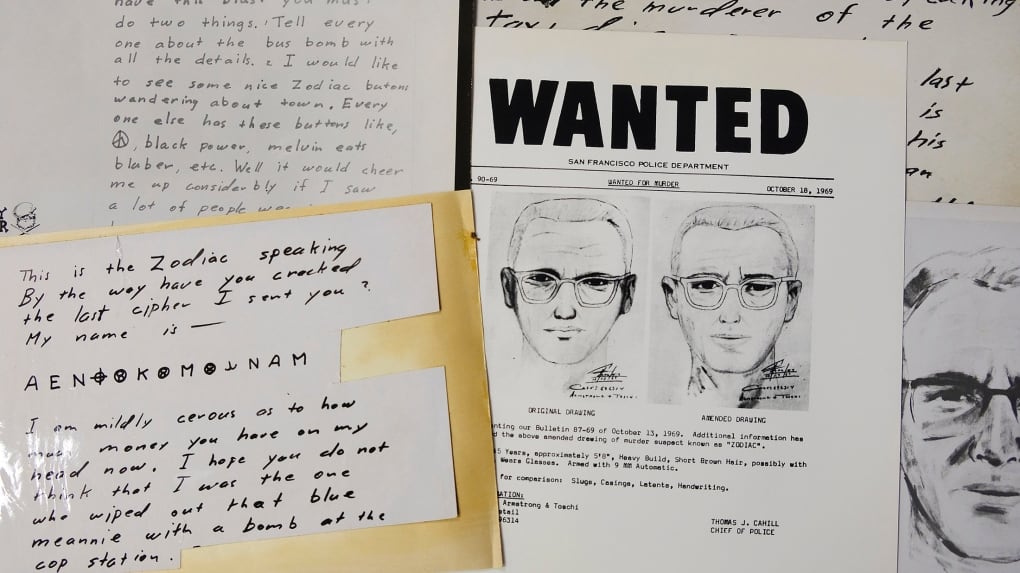 have this blast you must
do two things. Tell every
one about the bus bomb with
all the details. 2 I would like
to see some nice Zodiac butons
wandering about town. Every
one else has these buttons like,
☮, black power, melvin eats
bluber, etc. Well it would cheer
me up considerbly if I saw
a lot of people
This is the Zodiac speaking
By the way have you cracked
the last cipher I sent you ?
My name is —
A E N ⌖ ⊗ K ⊗ M ⊗ ⅃ N A M
I am mildly cerous as to how
much money you have on my
head now. I hope you do not
think that I was the one
who wiped out that blue
meannie with a bomb at the
cop station.
the murderer of the
last
is
his
WANTED
SAN FRANCISCO POLICE DEPARTMENT
90-69 WANTED FOR MURDER OCTOBER 18, 1969
ORIGINAL DRAWING AMENDED DRAWING
nting our Bulletin 87-69 of October 13, 1969. Additional information has
d the above amended drawing of murder suspect known as "ZODIAC".
5 Years, approximately 5'8", Heavy Build, Short Brown Hair, possibly with
Wears Glasses. Armed with 9 MM Automatic.
for comparison: Slugs, Casings, Latents, Handwriting.
ATION:
Armstrong & Toschi
etail
96314
THOMAS J. CAHILL
CHIEF OF POLICE